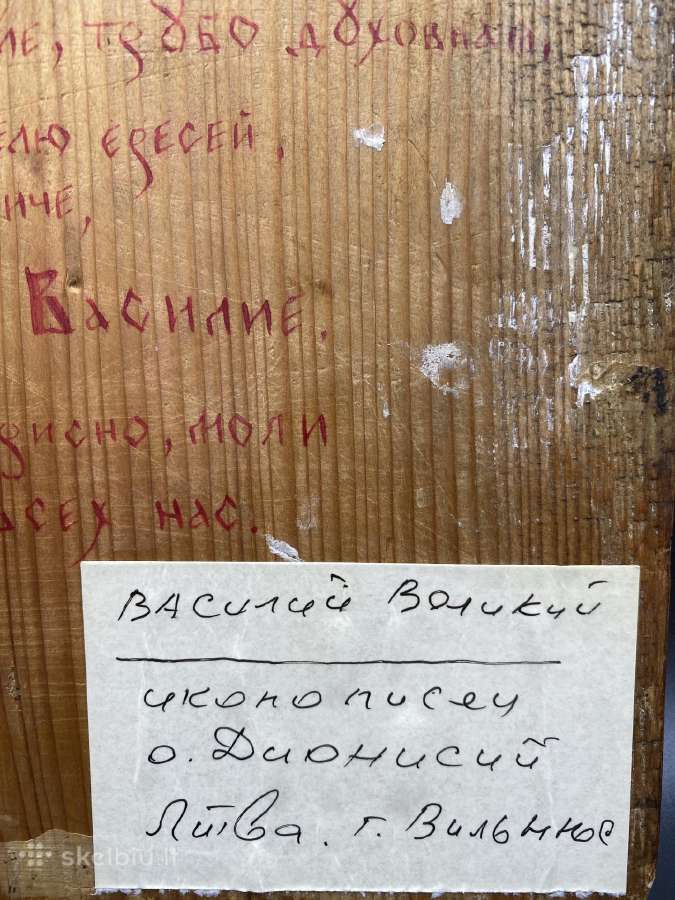 ие, трубо духовная,
елю ересей,
иче,
Василие,
дисно, моли
всех нас.
Василий Великий
иконописец
о. Дионисий
Литва. г. Вильнюс
skelbiu.lt